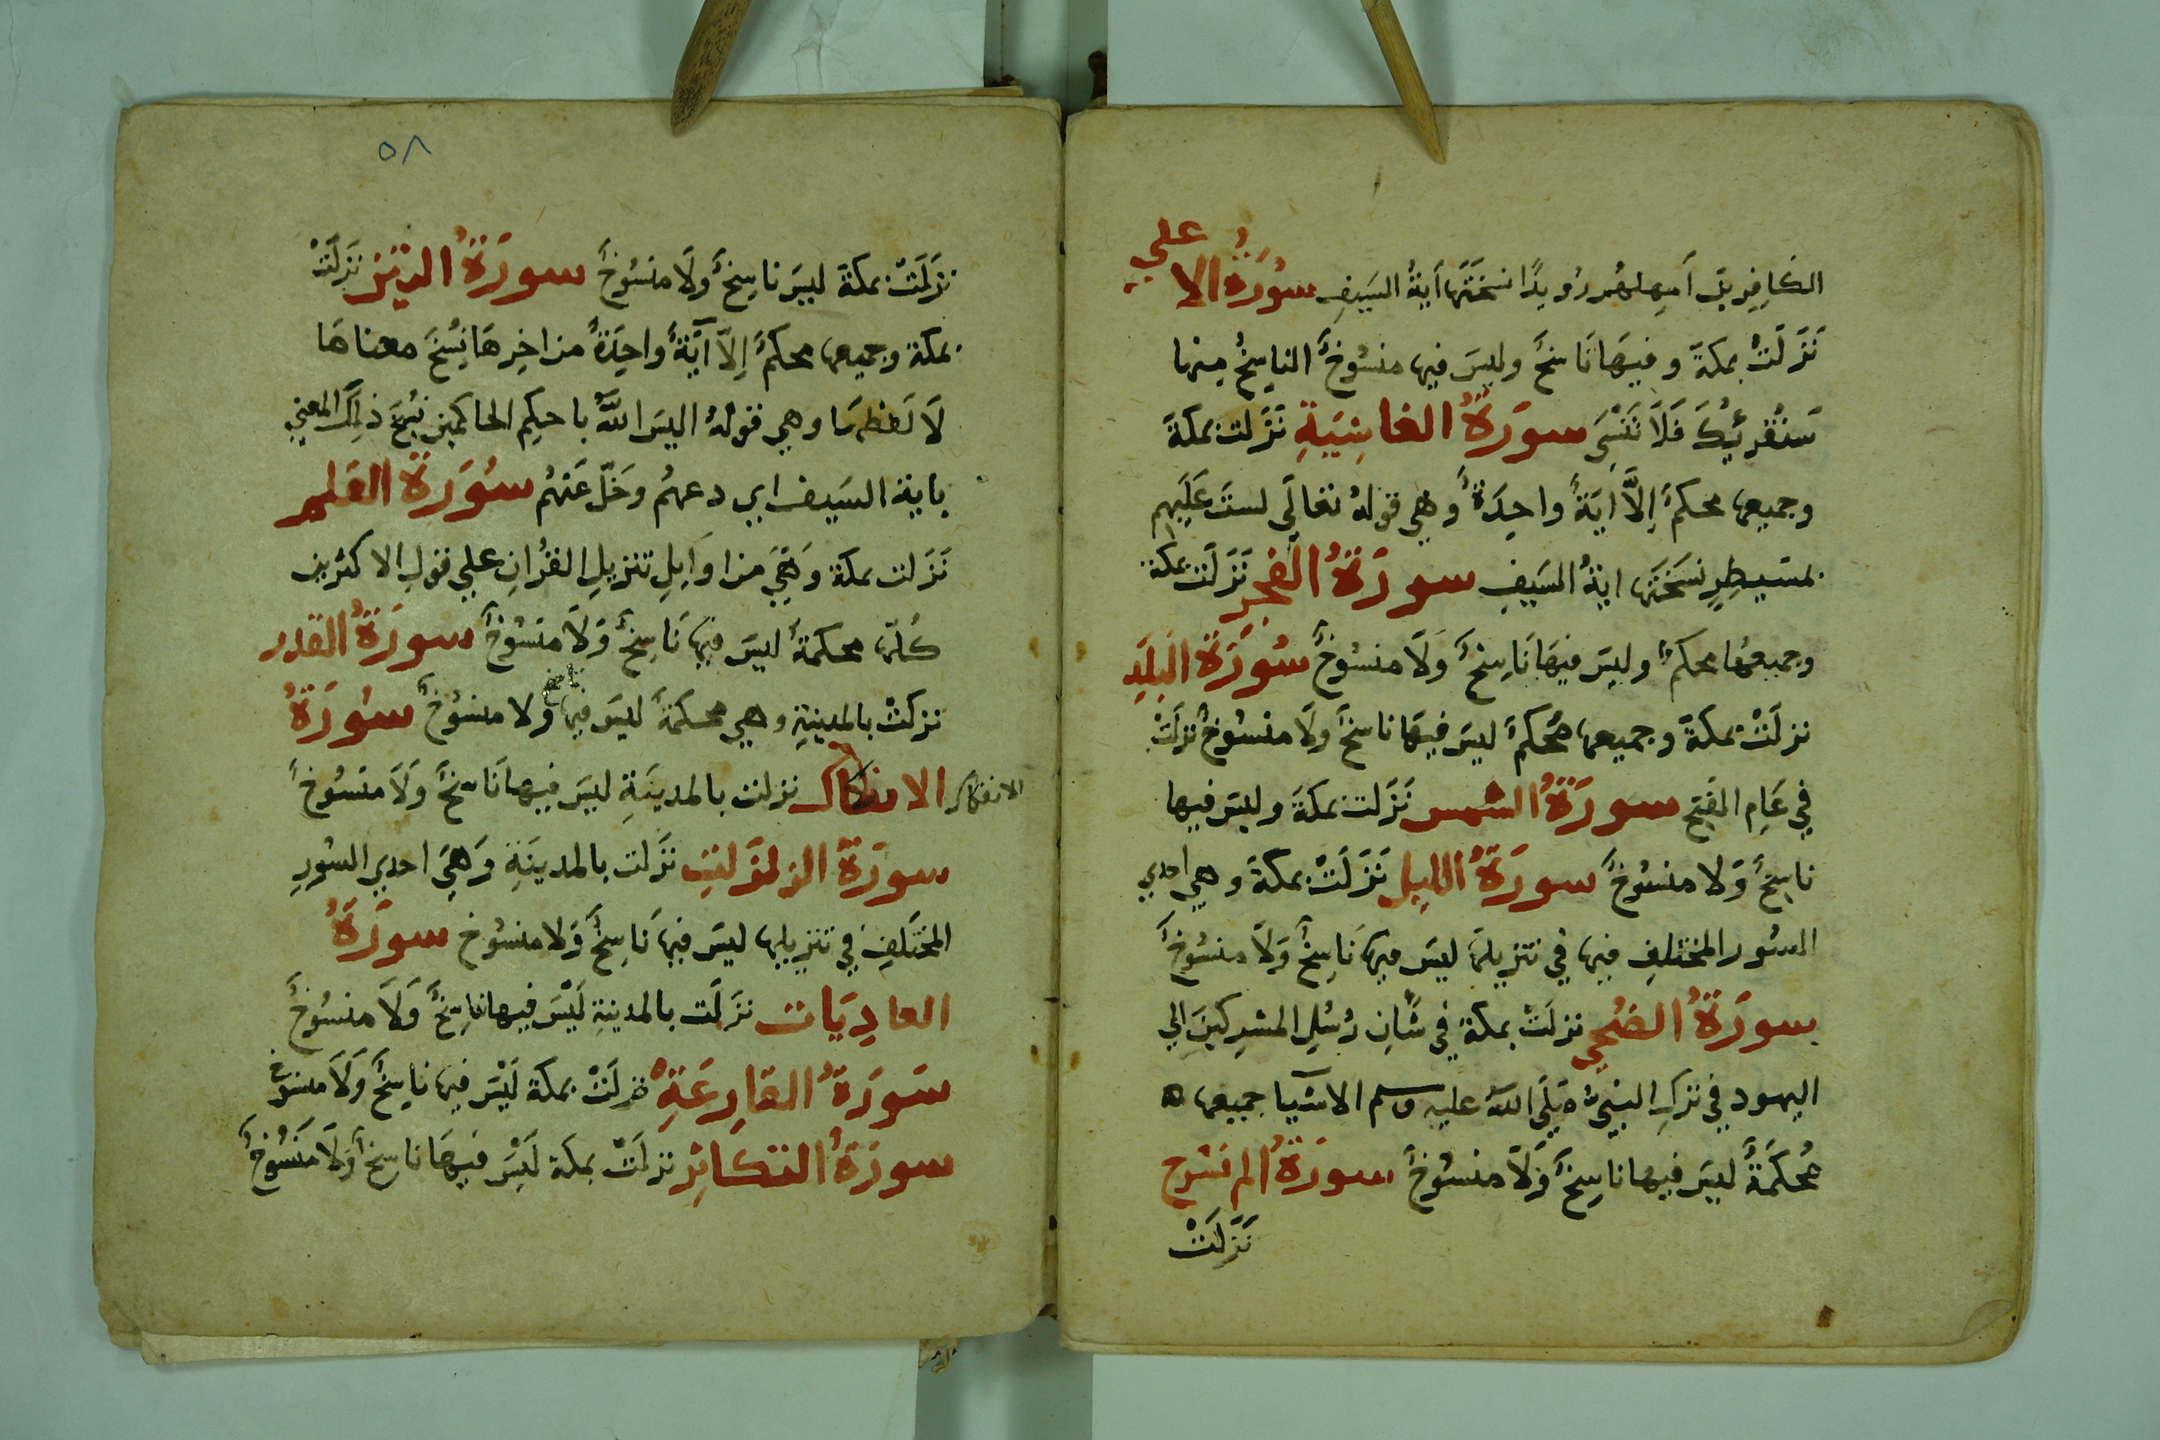 الكافرين امهلهم رويدًا نسختها اية السيف سورة الاعلي
نَزَلَتْ بمكة وفيهَا نَاسخ وليسَ فيها منسُوخ الناسِخُ مِنها
سَنُقْرئكَ فَلَا تَنْسَى سورَةُ الغاشِيَةِ نَزَلت بمكة
وجميعها محكم إِلَّا ايَةً واحِدَةً وهي قولهُ تعَالَى لستَ عَلَيهم
بمسَيطِرٍ نسَخَتها ايةُ السَيفِ سورَةُ الفَجرِ نَزَلَت بمكة
وجميعُها محكم وليسَ فيهَا نَاسِخ وَلَا منسُوخ سُورَةُ البَلَدِ
نزلَتْ بمكة وجميعها مُحكم ليسَ فيهَا ناسخ ولَا منسُوخ نزلَتْ
في عَامِ الفَتحِ سورَةُ الشمس نَزَلت بمكةَ وليسَ فيها
ناسِخ وَلا منسُوخ سورَةُ الليل نَزَلَتْ بمكة وهي احدي
السُور المختلفِ فيها في تنزيلها ليسَ فيها نَاسِخ وَلَا منسُوخ
سورَةُ الضُحي نزلَتْ بمكة في شَانِ رُسُلِ المشرِكينَ الي
اليهود في تركِ النبيّ صَلَى اللهُ عليهِ وسلم الاشيا جميعها ه
مُحكَمَةٌ ليسَ فيها ناسِخ وَلَا منسُوخ سورَةُ الم نشرح
نَزَلَتْ
٥٨
نزَلَتْ بمكة ليسَ ناسِخ ولَا منسُوخ سورَةُ التين نزلَتْ
بمكة وجميعها محكم إِلّا آيَةً واحِدَةً من اخِرِهَا نُسِخَ معناهَا
لَا لَفظهَا وهي قولهُ اليسَ اللهُ باحكِم الحاكمين نُسِخَ ذلِكَ المعني
باية السَيف اي دعهُم وخَلّ عَنهُم سُورَة القلم
نَزَلت بمكة وَهِيَ من اوَايِلِ تنزيلِ القُرانِ علي قولِ الاكثرين
كُلّها محكمة ليسَ فيها نَاسِخ وَلَا منسُوخ سورَةُ القدر
نزلَتْ بالمدينةِ وهي محكمة ليسَ فيها ناسخ ولا منسُوخ سُورَةُ
الانفكاك نزلت بالمدينَةِ ليسَ فيها نَاسخ وَلَا منسُوخ
الانفكاك
سورَةُ الزلزلة نزَلت بالمدينَةِ وَهِيَ احدي السُورِ
المختَلفِ في تنزيلها ليسَ فيها نَاسِخ وَلا منسُوخ سورَةُ
العادِيَات نزَلَت بالمدينةِ لَيْسَ فيها ناسِخ وَلَا منسُوخ
سَورَةُ القَارِعَةِ نزلَتْ بمكة لَيْسَ فيها ناسِخ وَلَا منسوخ
سورَةُ التكَاثِر نزلَتْ بمكة لَيْسَ فيهَا ناسِخ وَلَا مَنسُوخ